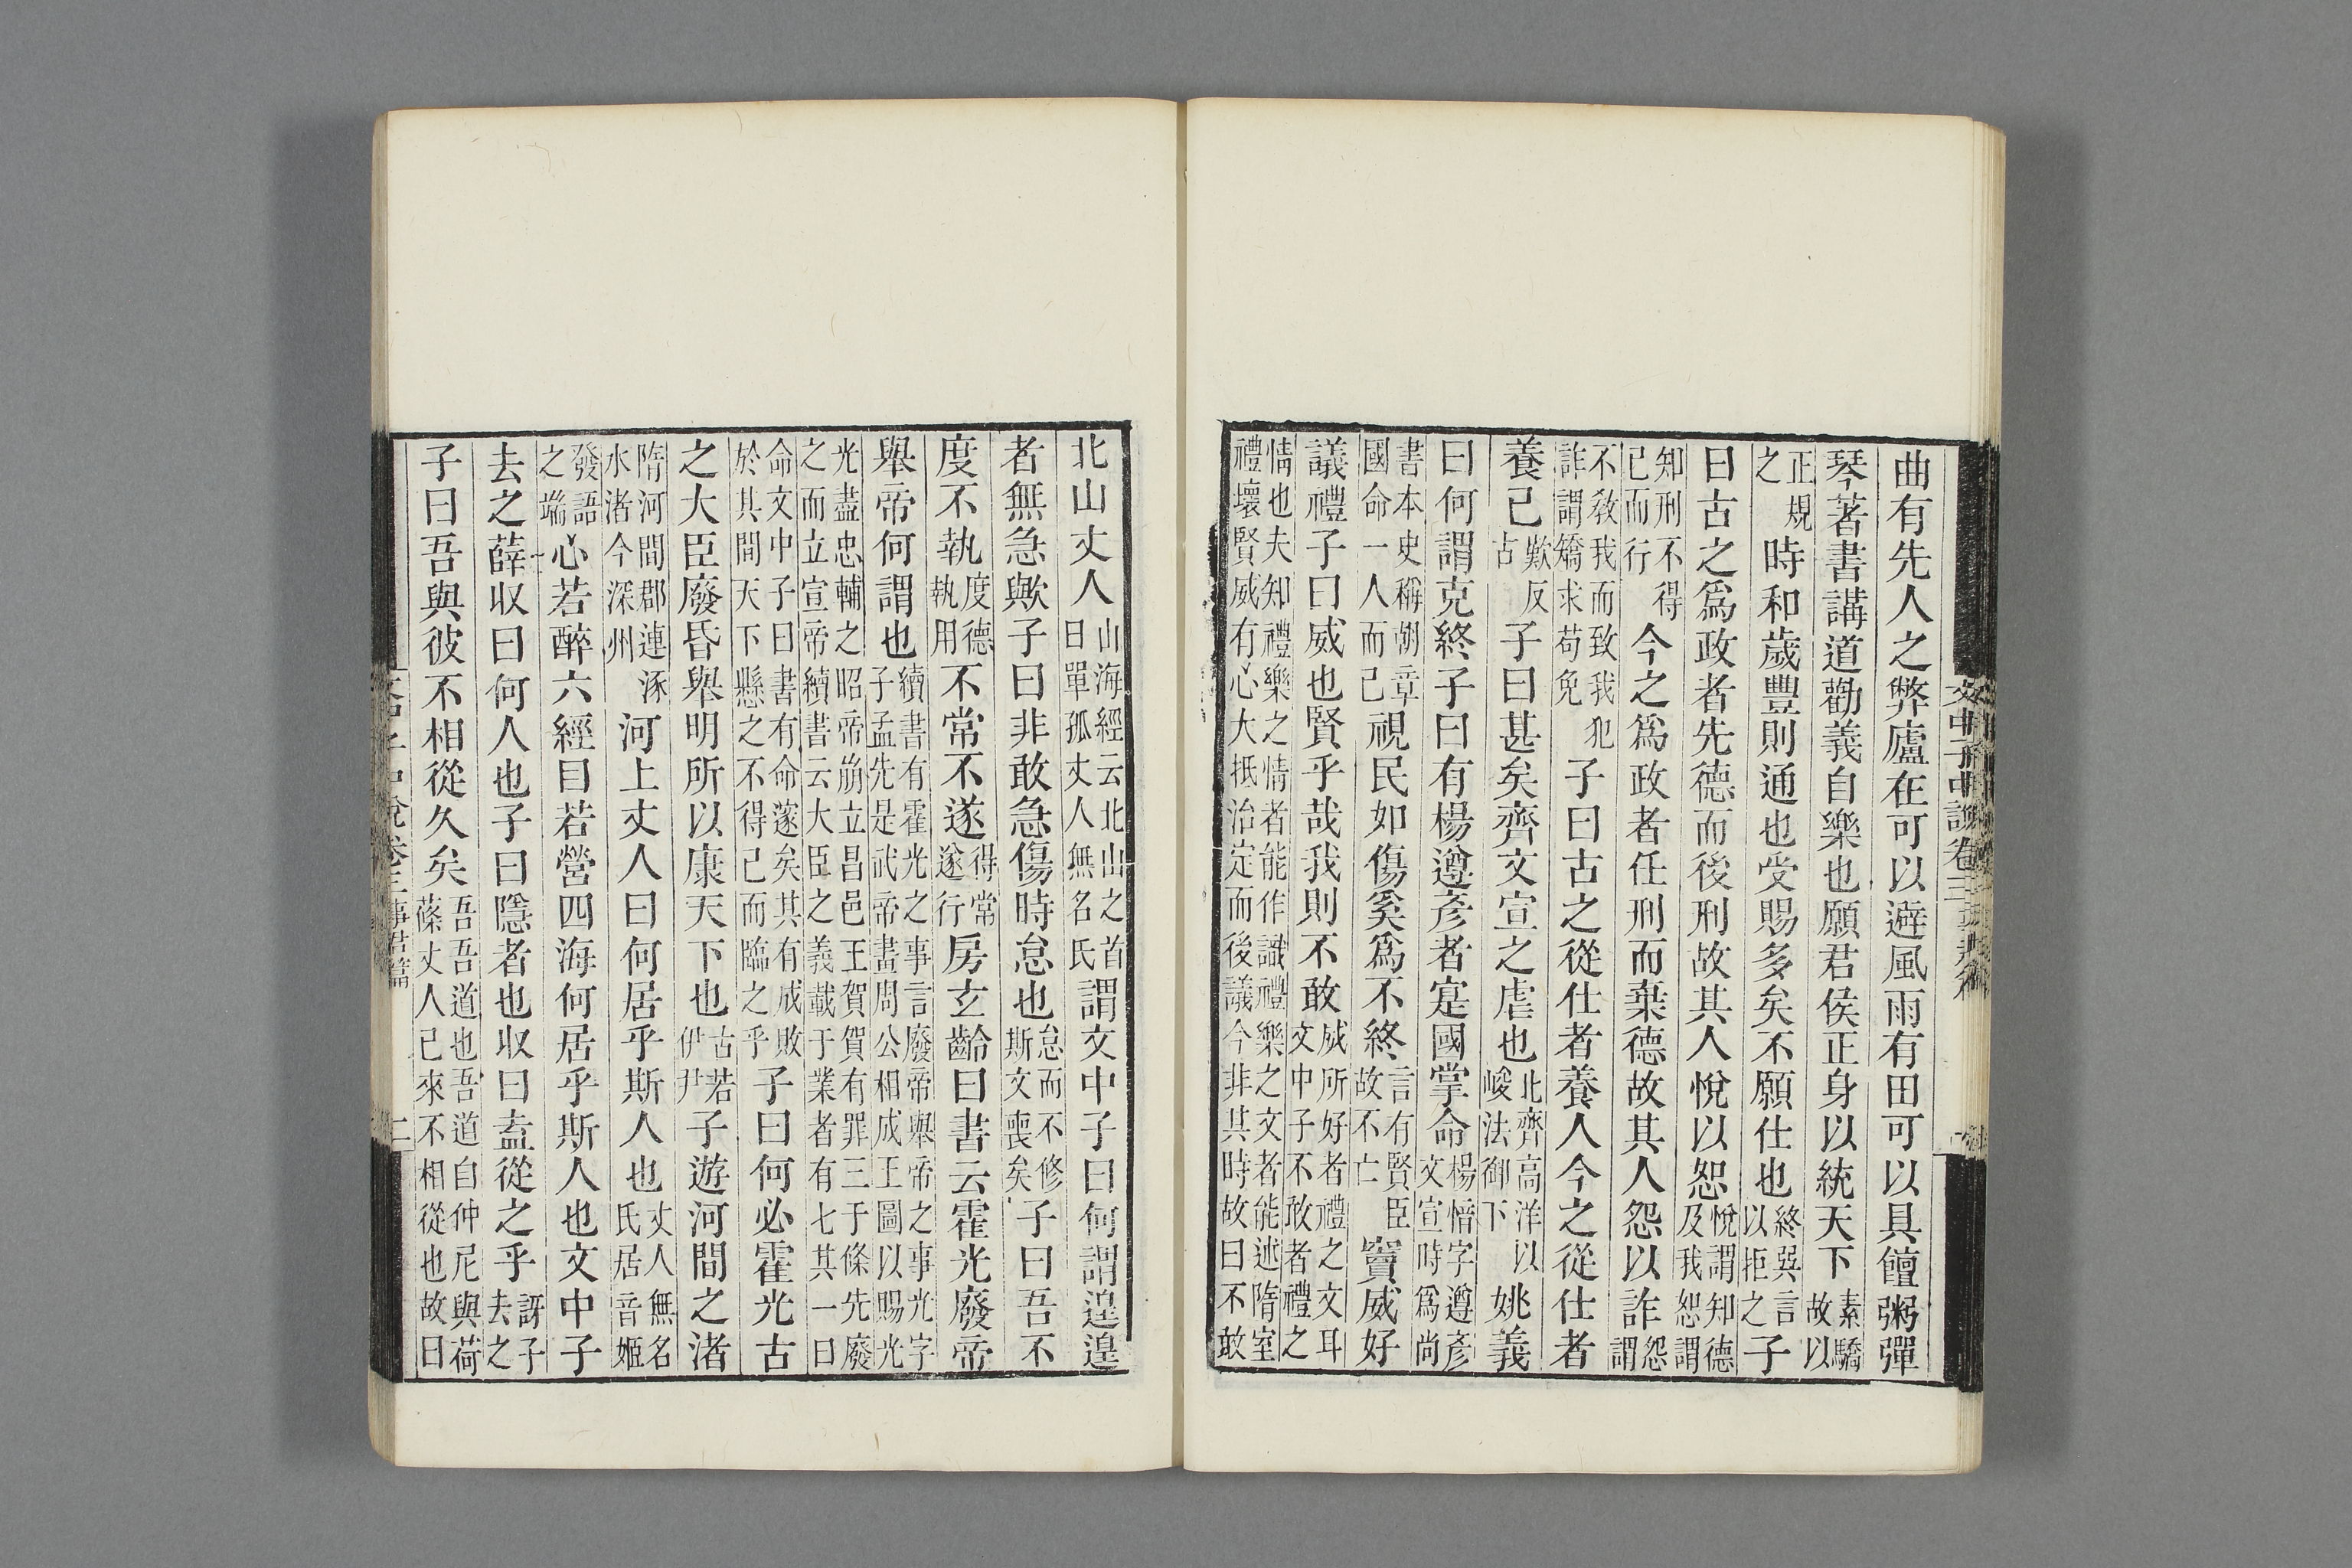 文中子中說卷三
曲有先人之弊廬在可以避風雨有田可以具饘粥彈
琴著書講道勸義自樂也願君侯正身以統天下素驕故以
正規之時和歲豐則通也受賜多矣不願仕也終巽言以拒之子
曰古之爲政者先德而後刑故其人悅以恕悅謂知德及我恕謂
知刑不得已而行今之爲政者任刑而棄德故其人怨以詐怨謂
不敎我而致我犯詐謂矯求苟免子曰古之從仕者養人今之從仕者
養己歎反古子曰甚矣齊文宣之虐也北齊高洋以峻法御下姚義
曰何謂克終子曰有楊遵彥者寔國掌命楊愔字遵彥文宣時爲尚
書本史稱朝章國命一人而已視民如傷奚爲不終言有賢臣故不亡竇威好
議禮子曰威也賢乎哉我則不敢威所好者禮之文耳文中子不敢者禮之
情也夫知禮樂之情者能作識禮樂之文者能述隋室禮壞賢威有心大抵治定而後議今非其時故曰不敢
北山丈人山海經云北山之首曰單孤丈人無名氏謂文中子曰何謂遑遑
者無急歟子曰非敢急傷時怠也怠而不修斯文喪矣子曰吾不
度不執度德執用不常不遂得常遂行房玄齡曰書云霍光廢帝
舉帝何謂也續書有霍光之事言廢帝舉帝之事光字子孟先是武帝畫周公相成王圖以賜光
光盡忠輔之昭帝崩立昌邑王賀賀有罪三于條先廢之而立宣帝續書云大臣之義載于業者有七其一曰
命文中子曰書有命邃矣其有成敗於其間天下懸之不得已而臨之乎子曰何必霍光古
之大臣廢昏舉明所以康天下也古若伊尹子遊河間之渚
隋河間郡連涿水渚今深州河上丈人曰何居乎斯人也丈人無名氏居音姬
發語之端心若醉六經目若營四海何居乎斯人也文中子
去之薛収曰何人也子曰隱者也収曰盍從之乎訝子去之
子曰吾與彼不相從久矣吾吾道也吾道自仲尼與荷蓧丈人已來不相從也故曰
文中子中說卷三事君篇 二